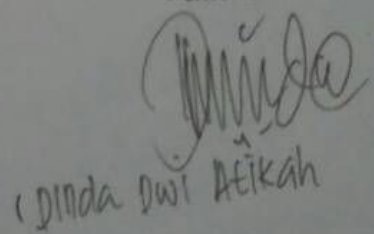 ( Dinda Dwi Atikah